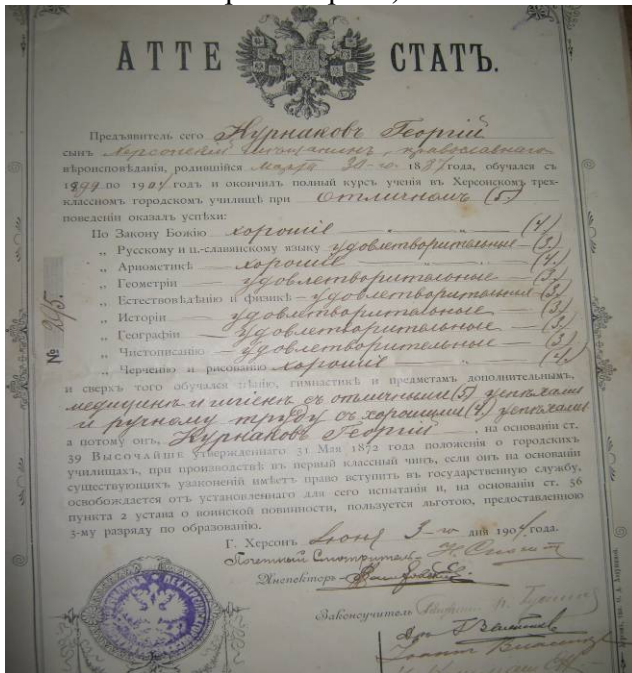 АТТЕ СТАТЪ.
Предъявитель сего Курнаковъ Георгій
сынъ Херсонскій мѣщанинъ, православнаго
вѣроисповѣданія, родившійся Марта 30-го 1887 года, обучался съ
1899 по 1904 годъ и окончилъ полный курсъ ученія въ Херсонскомъ трех-
классномъ городскомъ училищѣ при отличномъ (5)
поведеніи оказалъ успѣхи:
По Закону Божію хорошіе (4)
„ Русскому и ц.-славянскому языку удовлетворительные (3)
„ Ариѳметикѣ хорошіе (4)
„ Геометріи удовлетворительные (3)
„ Естествовѣдѣнію и физикѣ удовлетворительные (3)
„ Исторіи удовлетворительные (3)
„ Географіи удовлетворительные (3)
„ Чистописанію удовлетворительные (3)
„ Черченію и рисованію хорошіе (4)
и сверхъ того обучался пѣнію, гимнастикѣ и предметамъ дополнительнымъ,
медицинѣ и гигіенѣ съ отличными (5) успѣхами
и ручному труду съ хорошими (4) успѣхами
а потому онъ, Курнаковъ Георгій, на основаніи ст.
39 Высочайше утвержденнаго 31 Мая 1872 года положенія о городскихъ
училищахъ, при производствѣ въ первый классный чинъ, если онъ на основаніи
существующихъ узаконеній имѣетъ право вступить въ государственную службу,
освобождается отъ установленнаго для сего испытанія и, на основаніи ст. 56
пункта 2 устава о воинской повинности, пользуется льготою, предоставленною
3-му разряду по образованію.
Г. Херсонъ Іюня 3-го дня 1904 года.
Почетный Смотритель
Инспекторъ
Законоучитель
№ 295.